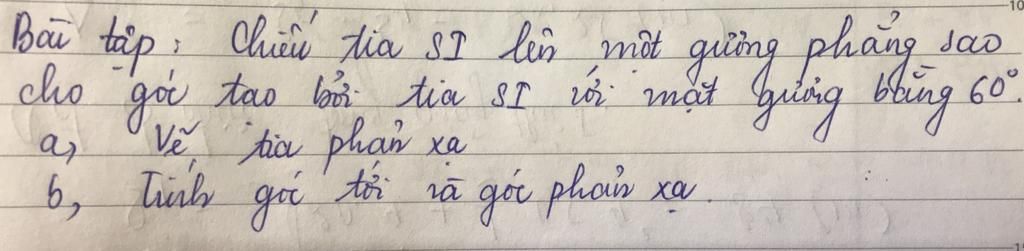 Bài tập: Chiếu tia SI lên một gương phẳng sao
cho góc tạo bởi tia SI với mặt gương bằng 60°.
a, Vẽ tia phản xạ
b, Tính góc tới và góc phản xạ.